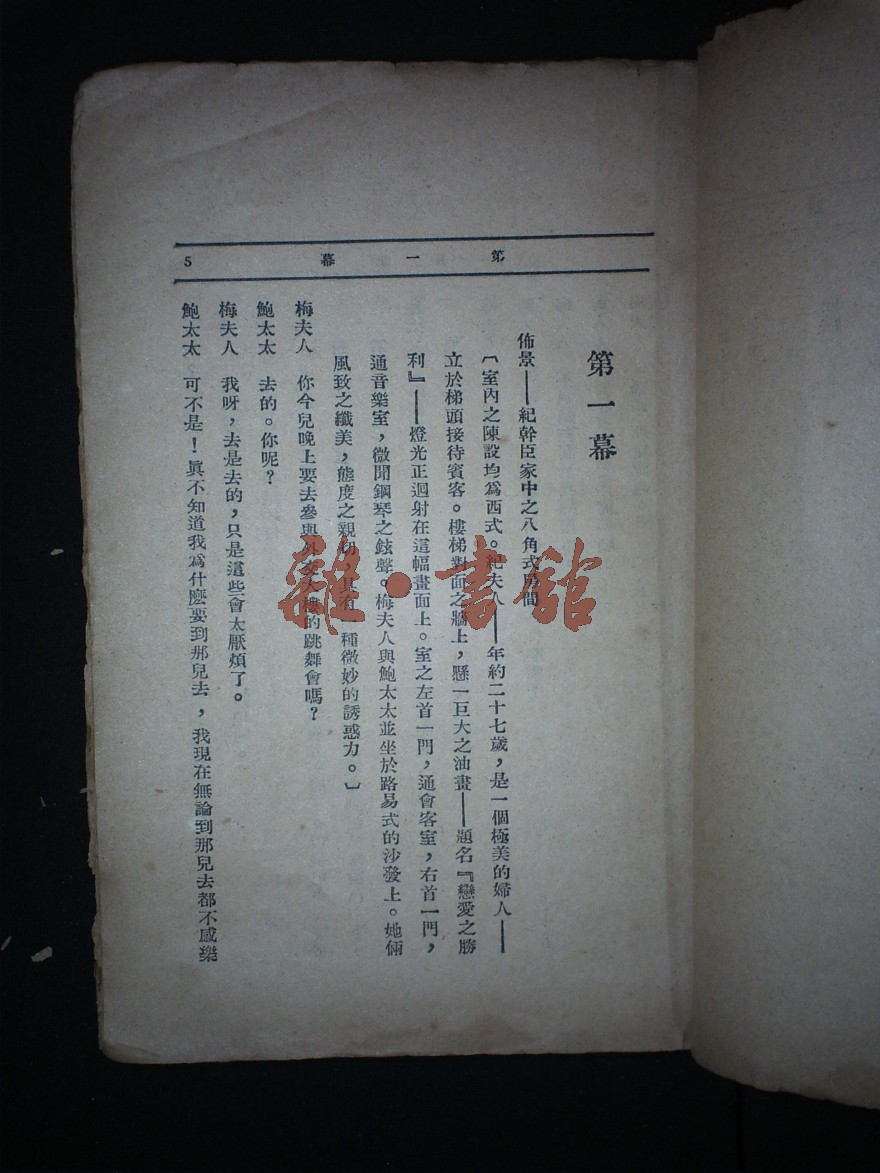 第一幕
5
第一幕
佈景——紀幹臣家中之八角式房間
〔室內之陳設均為西式。紀夫人——年約二十七歲，是一個極美的婦人——
立於梯頭接待賓客。樓梯對面之牆上，懸一巨大之油畫——題名『戀愛之勝
利』——燈光正迴射在這幅畫面上。室之左首一門，通會客室，右首一門，
通音樂室，微聞鋼琴之鉉聲。梅夫人與鮑太太並坐於路易式的沙發上。她倆
風致之纖美，態度之親切，具有一種微妙的誘惑力。〕
梅夫人　你今兒晚上要去參與外交大樓的跳舞會嗎？
鮑太太　去的。你呢？
梅夫人　我呀，去是去的，只是這些會太厭煩了。
鮑太太　可不是！眞不知道我爲什麼要到那兒去，我現在無論到那兒去都不感樂
雜·書館